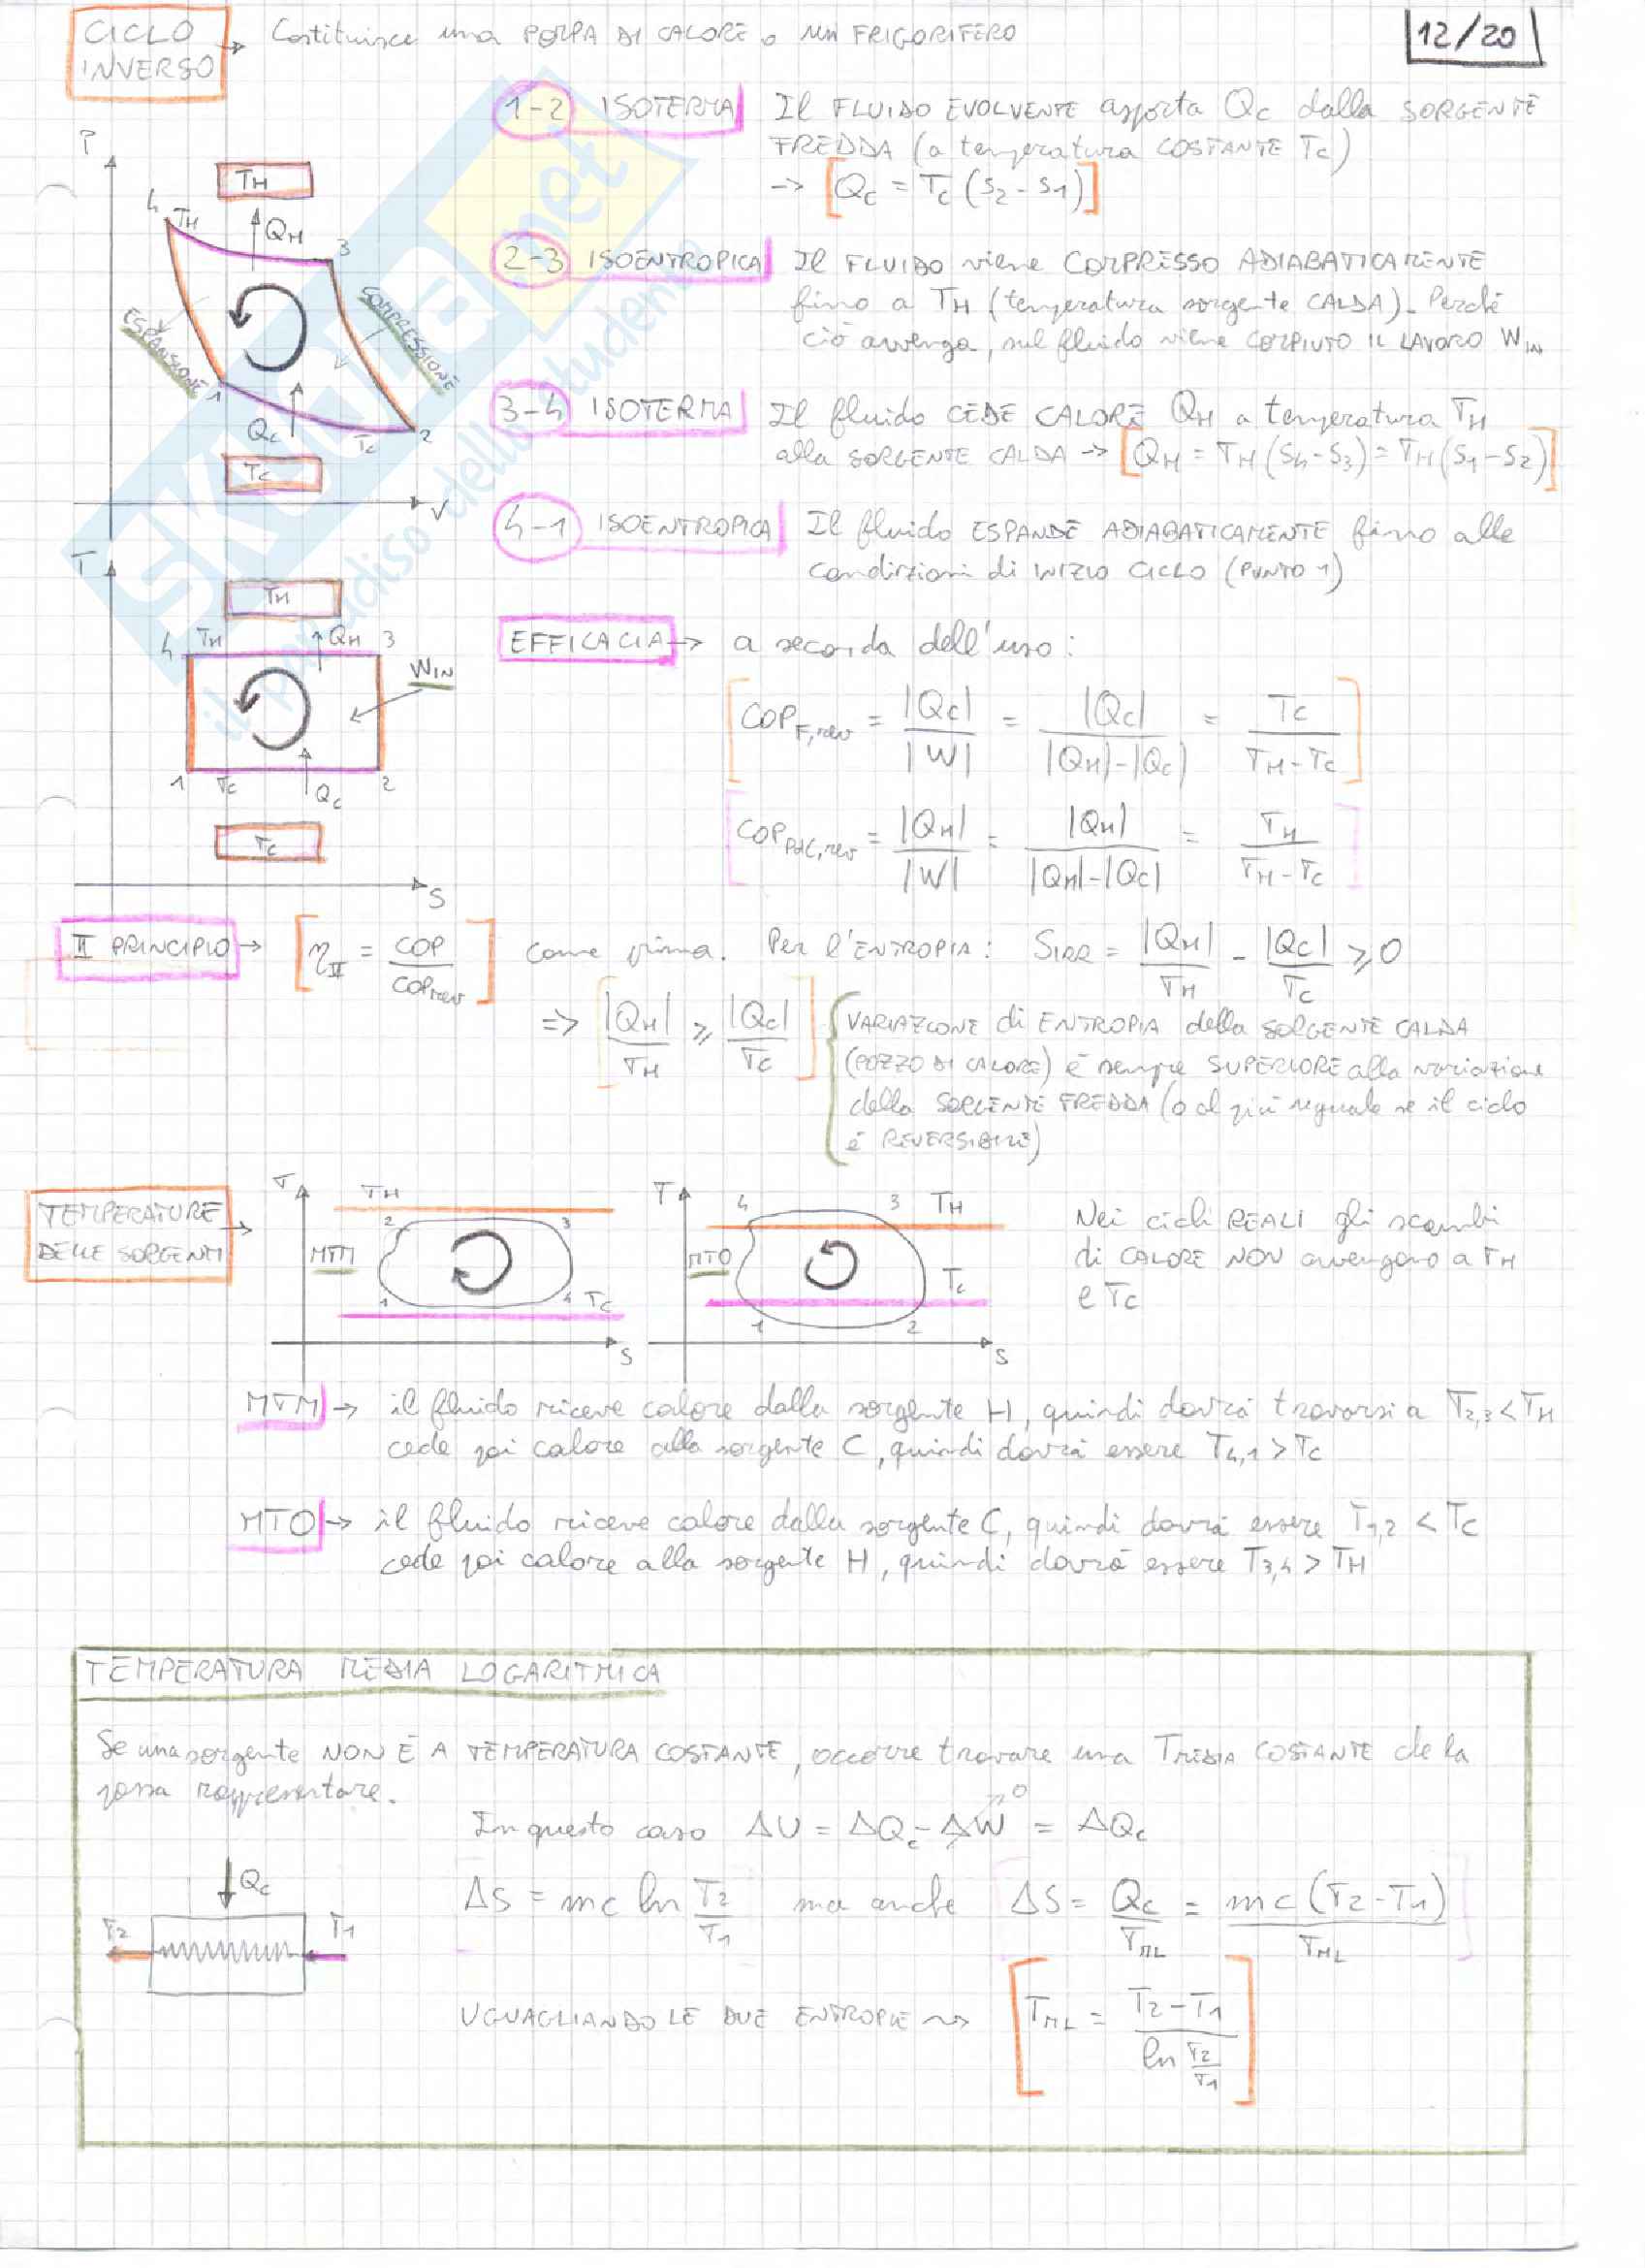 CICLO INVERSO → Costituisce una POMPA DI CALORE o UN FRIGORIFERO
12/20
1-2 ISOTERMA Il FLUIDO EVOLVENTE asporta Qc dalla SORGENTE
FREDDA (a temperatura COSTANTE Tc)
→ [Qc = Tc (S2 - S1)]
2-3 ISOENTROPICA Il FLUIDO viene COMPRESSO ADIABATICAMENTE
fino a TH (temperatura sorgente CALDA). Perché
ciò avvenga, sul fluido viene COMPIUTO IL LAVORO WIN
3-4 ISOTERMA Il fluido CEDE CALORE QH a temperatura TH
alla SORGENTE CALDA → [QH = TH (S4 - S3) = TH (S1 - S2)]
4-1 ISOENTROPICA Il fluido ESPANDE ADIABATICAMENTE fino alle
condizioni di INIZIO CICLO (PUNTO 1)
P
TH
4 TH QH 3
ESPANSIONE
COMPRESSIONE
1 Qc Tc 2
Tc
V
T
TH
4 TH QH 3
WIN
1 Tc Qc 2
Tc
S
SKUOLA.net
il paradiso dello studente
EFFICACIA → a seconda dell'uso:
[COPF,rev = |Qc| / |W| = |Qc| / (|QH| - |Qc|) = Tc / (TH - Tc)]
[COPPdC,rev = |QH| / |W| = |QH| / (|QH| - |Qc|) = TH / (TH - Tc)]
II PRINCIPIO → [ηII = COP / COPrev] come prima. Per l'ENTROPIA: SIRR = |QH| / TH - |Qc| / Tc ≥ 0
⇒ [|QH| / TH ≥ |Qc| / Tc] { VARIAZIONE di ENTROPIA della SORGENTE CALDA
(POZZO DI CALORE) è sempre SUPERIORE alla variazione
della SORGENTE FREDDA (o al più uguale se il ciclo
è REVERSIBILE)
TEMPERATURE DELLE SORGENTI →
T TH
2 3
MTM
1 4 Tc
S
T 4 3 TH
MTO
Tc
1 2
S
Nei cicli REALI gli scambi
di CALORE NON avvengono a TH
e Tc
MTM → il fluido riceve calore dalla sorgente H, quindi dovrà trovarsi a T2,3 < TH
cede poi calore alla sorgente C, quindi dovrà essere T4,1 > Tc
MTO → il fluido riceve calore dalla sorgente C, quindi dovrà essere T1,2 < Tc
cede poi calore alla sorgente H, quindi dovrà essere T3,4 > TH
TEMPERATURA MEDIA LOGARITMICA
Se una sorgente NON È A TEMPERATURA COSTANTE, occorre trovare una TMEDIA COSTANTE che la
possa rappresentare.
In questo caso ΔU = ΔQc - ΔW→0 = ΔQc
Qc
T2 T1
ΔS = mc ln T2/T1 ma anche ΔS = Qc / TML = mc (T2 - T1) / TML
UGUAGLIANDO LE DUE ENTROPIE → [TML = (T2 - T1) / ln T2/T1]